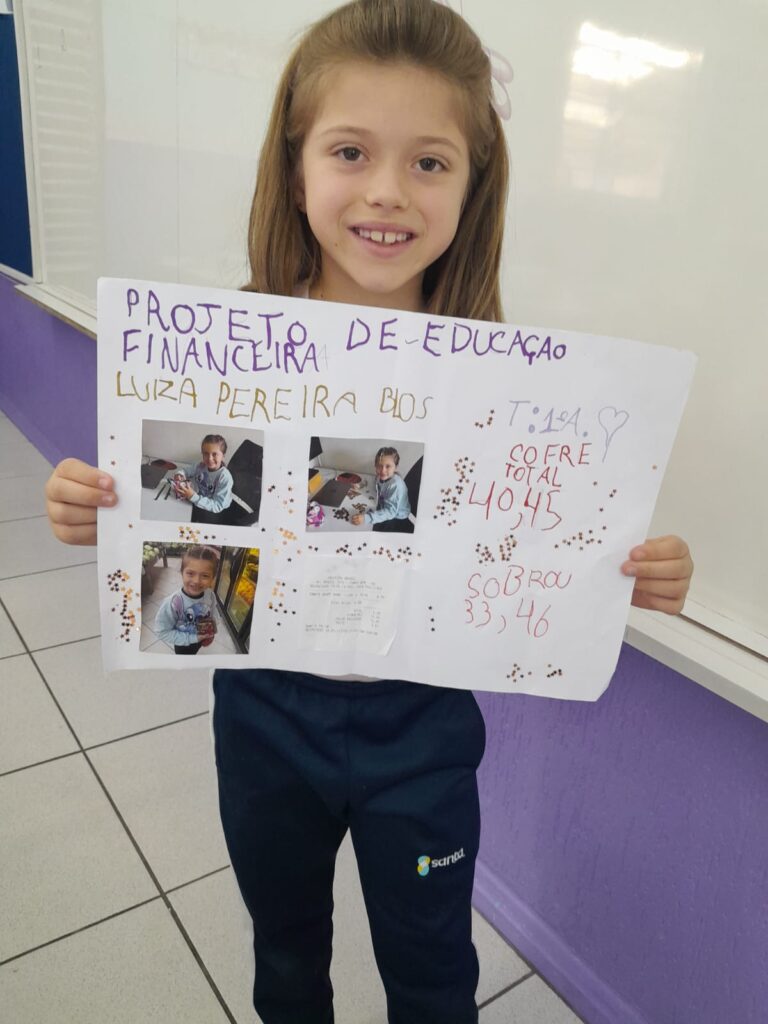 PROJETO DE-EDUCAÇAO
FINANCEIRA
LUIZA PEREIRA BLOS
T:1ºA.
COFRE
TOTAL
40,45
SOBROU
33,46
santa